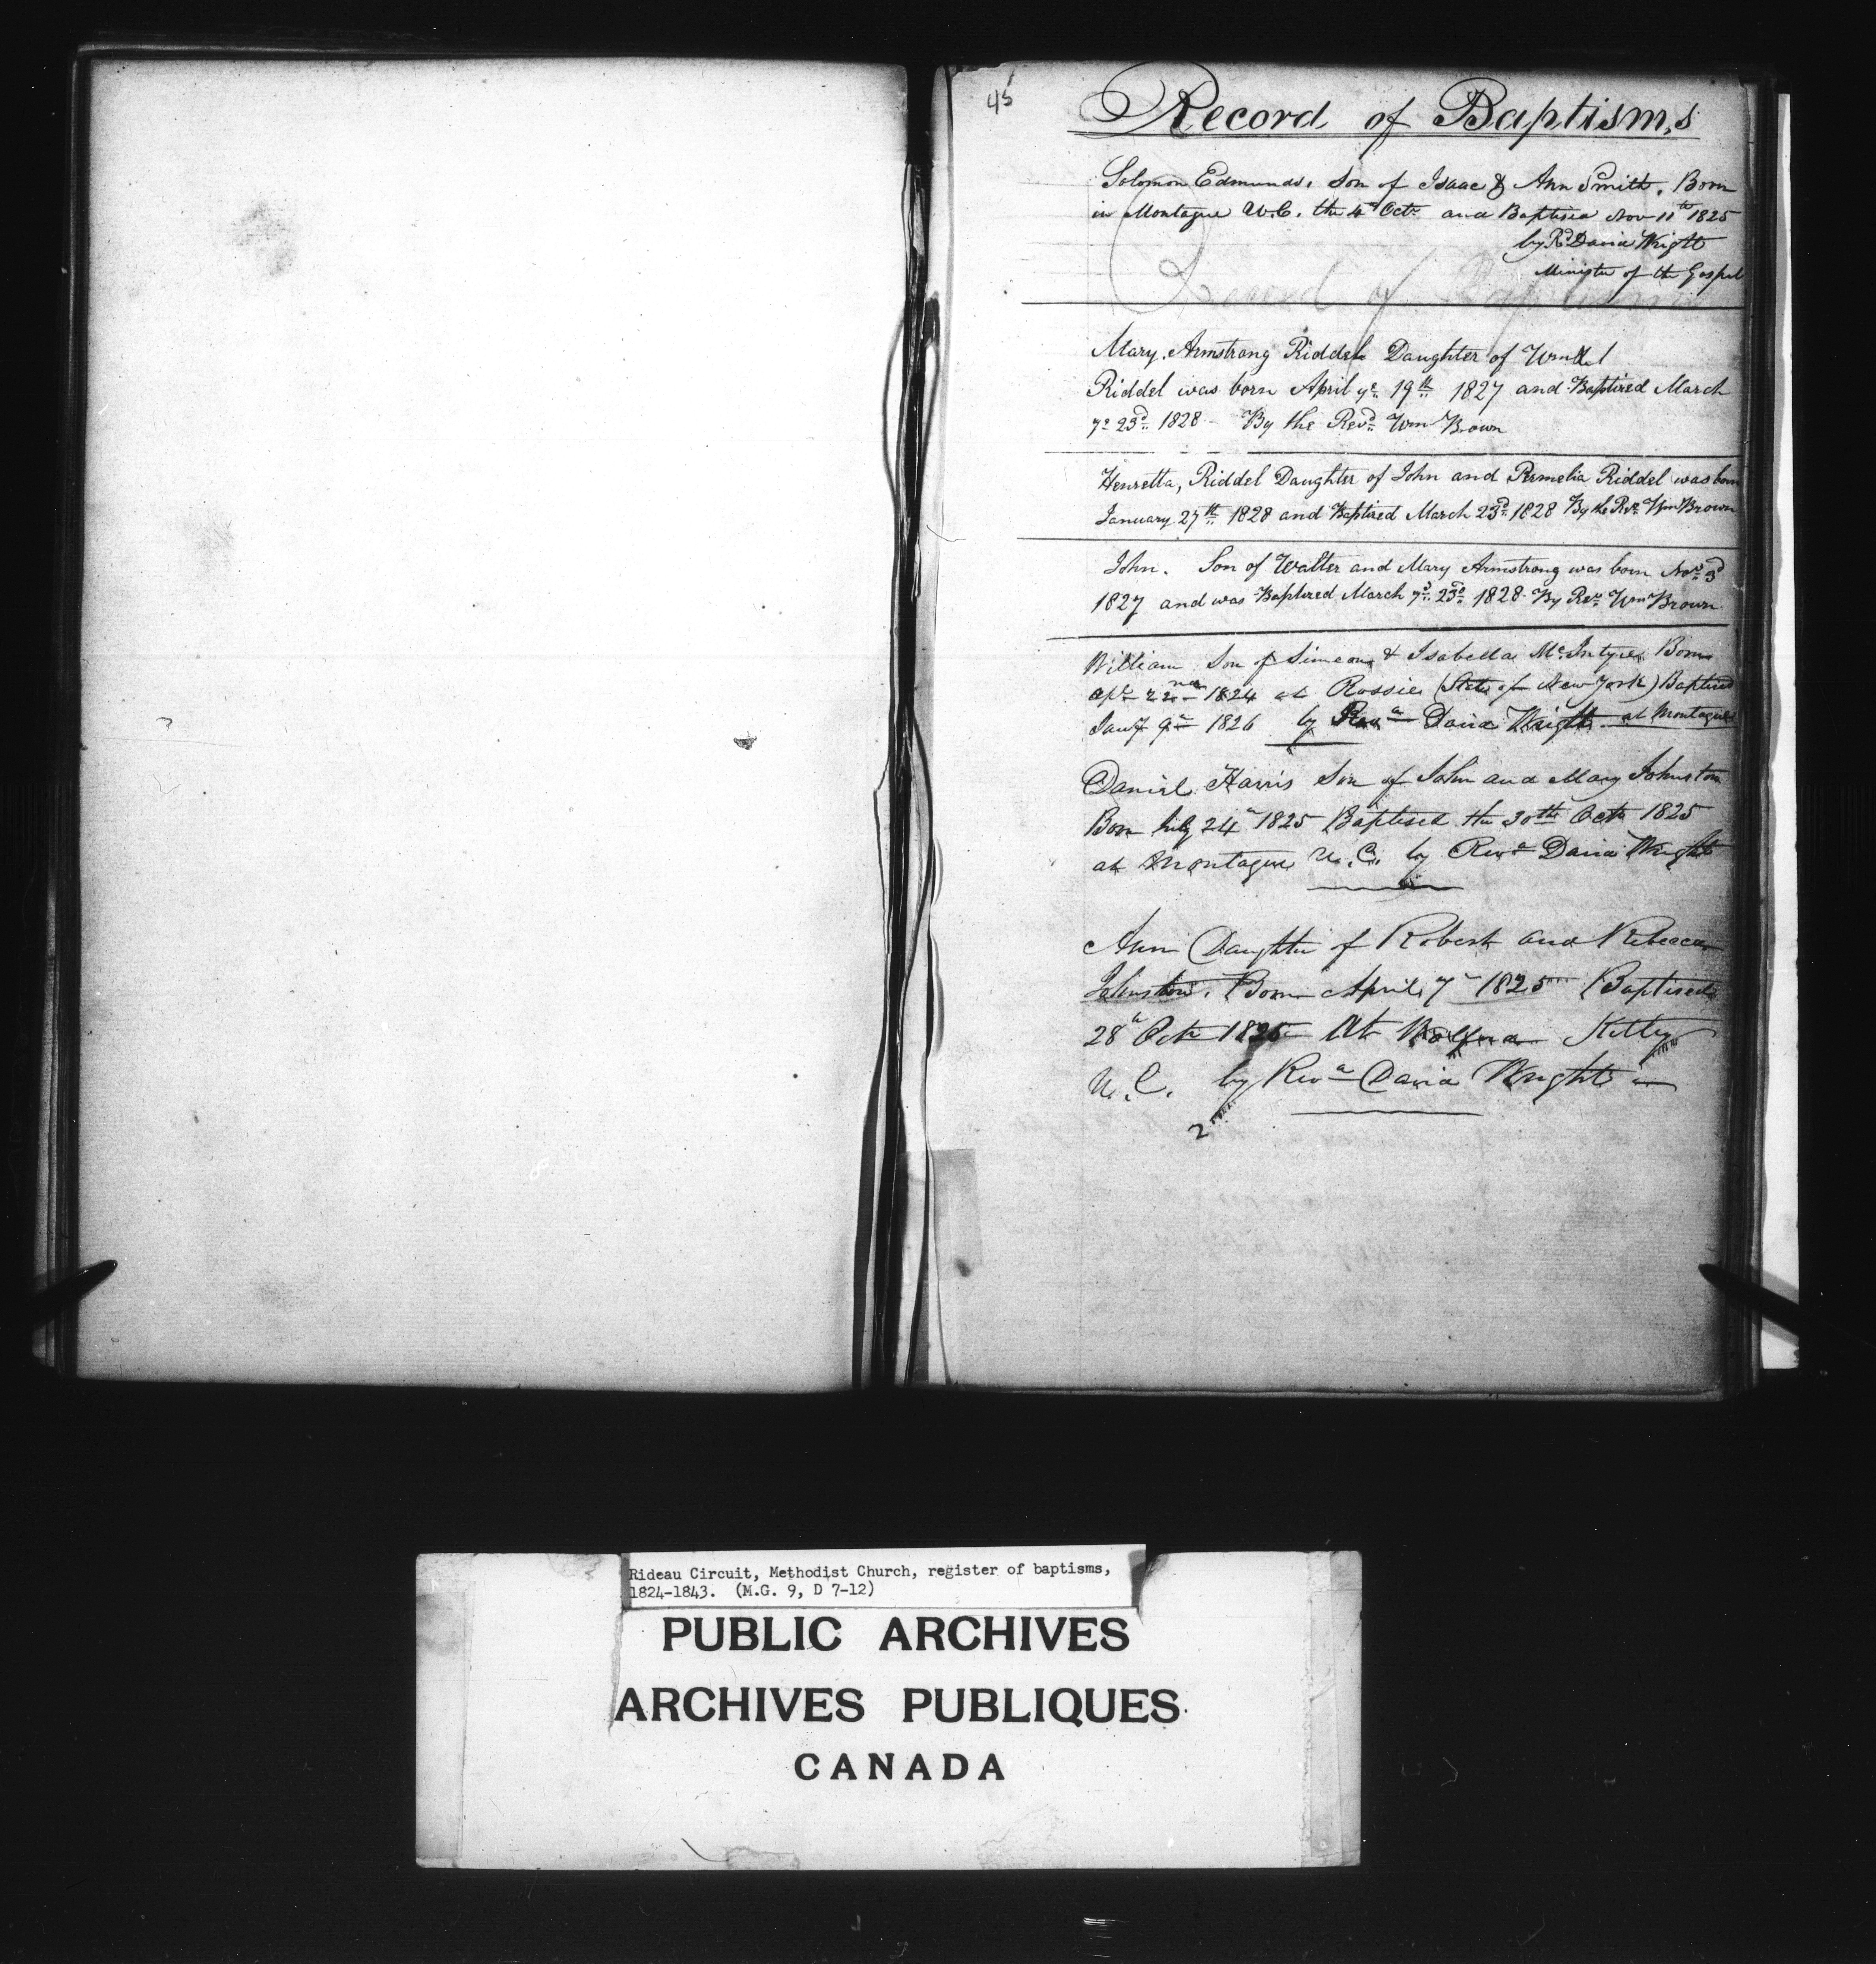 45
Record of Baptisms
Solomon Edmunds. Son of Isaac & Ann Smith. Born
in Montague U.C. the 4th Octr and Baptised Nov 11th 1825
by Rd David Wright
Minister of the Gospel
Record of Baptisms
Mary Armstrong Riddel Daughter of
Riddel was born April ye 19th 1827 and Baptized March
ye 23d 1828 - By the Revd Wm Brown
Henretta, Riddel Daughter of John and Permelia Riddel was born
January 27th 1828 and Baptized March 23d 1828 By the Rev Wm Brown
John. Son of Walter and Mary Armstrong was born Novr 3d
1827 and was Baptized March ye 23d 1828 By Rev Wm Brown
William Son of Simeon & Isabella McIntyre Born
Apl 22nd 1824 at Rossie (State of New York) Baptised
Jany 9th 1826 by Revd David Wright at Montague
Daniel Harris Son of John and Mary Johnston
Born July 24th 1825 Baptised the 30th Octr 1825
at Montague U.C. by Revd David Wright
Ann Daughter of Robert and Rebecca
Johnston. Born April 7th 1825 Baptised
28th Octr 1825 At Kitley
U.C. by Revd David Wright
2
Rideau Circuit, Methodist Church, register of baptisms,
1824-1843. (M.G. 9, D 7-12)
PUBLIC ARCHIVES
ARCHIVES PUBLIQUES
CANADA